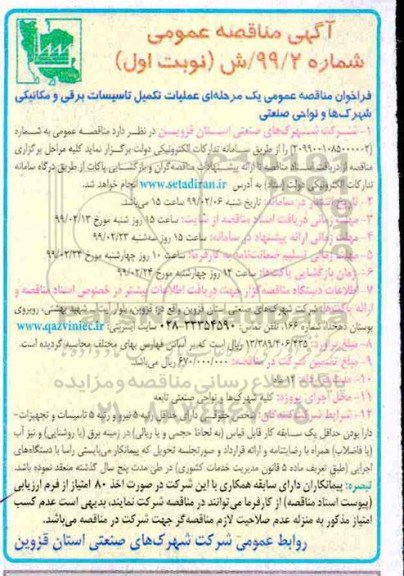 آگهی مناقصه عمومی
شماره ۹۹/۲/ش (نوبت اول)
فراخوان مناقصه عمومی یک مرحله‌ای عملیات تکمیل تاسیسات برقی و مکانیکی
شهرک‌ها و نواحی صنعتی
۱- شرکت شهرک‌های صنعتی استان قزوین در نظر دارد مناقصه عمومی به شماره
(۲۰۹۹۰۰۱۰۸۵۰۰۰۰۰۲) را از طریق سامانه تدارکات الکترونیکی دولت برگزار نماید کلیه مراحل برگزاری
مناقصه از دریافت اسناد مناقصه تا ارائه پیشنهادات مناقصه‌گران و بازگشایی پاکات از طریق درگاه سامانه
تدارکات الکترونیکی دولت (ستاد) به آدرس www.setadiran.ir انجام خواهد شد.
۲- تاریخ انتشار در سامانه: تاریخ شنبه ۹۹/۰۲/۰۶ ساعت ۱۵ می‌باشد.
۳- مهلت زمانی دریافت اسناد مناقصه از سایت: ساعت ۱۵ روز شنبه مورخ ۹۹/۰۲/۱۳
۴- مهلت زمانی ارائه پیشنهاد در سامانه: ساعت ۱۵ روز سه‌شنبه ۹۹/۰۲/۲۳
۵- مهلت زمانی تسلیم ضمانت‌نامه به کارفرما: ساعت ۱۰ روز چهارشنبه مورخ ۹۹/۰۲/۲۴
۶- زمان بازگشایی پاکت‌ها: ساعت ۱۲ روز چهارشنبه مورخ ۹۹/۰۲/۲۴
۷- اطلاعات دستگاه مناقصه‌گزار جهت دریافت اطلاعات بیشتر در خصوص اسناد مناقصه و
ارائه پاکت‌ها: شرکت شهرک‌های صنعتی استان قزوین واقع در: قزوین، بلوار شهید بهشتی، روبروی
بوستان دهخدا، شماره ۱۶۶، تلفن تماس: ۳۳۳۵۴۵۹۰-۰۲۸ سایت اینترنتی: www.qazviniec.ir
۸- مبلغ برآورد: ۱۳/۲۸۹/۴۰۶/۴۳۵ ریال است که بر اساس فهارس بهای مختلف محاسبه گردیده است.
۹- مبلغ تضمین شرکت در مناقصه: ۶۷۰/۰۰۰/۰۰۰ ریال می‌باشد.
۱۰- ۱۲ ماه
۱۱- محل اجرای پروژه: کلیه شهرک‌ها و نواحی صنعتی تابعه
۱۲- شرایط شرکت‌کنندگان: شخص حقوقی دارای حداقل رتبه ۵ نیرو و رتبه ۵ تاسیسات و تجهیزات-
دارا بودن حداقل یک سابقه کار قابل قیاس (به لحاظ حجمی و یا ریالی) در زمینه برق (یا روشنایی) و نیز آب
(یا فاضلاب) همراه با رضایتنامه و ارائه قرارداد و صورتجلسه تحویل که پیمانکار می‌بایستی رأسا با دستگاه‌های
اجرایی (طبق تعریف ماده ۵ قانون مدیریت خدمات کشوری) در طی مدت پنج سال گذشته منعقد نموده باشد.
تبصره: پیمانکاران دارای سابقه همکاری با این شرکت در صورت اخذ ۸۰ امتیاز از فرم ارزیابی
(پیوست اسناد مناقصه) از کارفرما می‌توانند در مناقصه شرکت نمایند، بدیهی است عدم کسب
امتیاز مذکور به منزله عدم صلاحیت لازم مناقصه‌گر جهت شرکت در مناقصه می‌باشد.
روابط عمومی شرکت شهرک‌های صنعتی استان قزوین